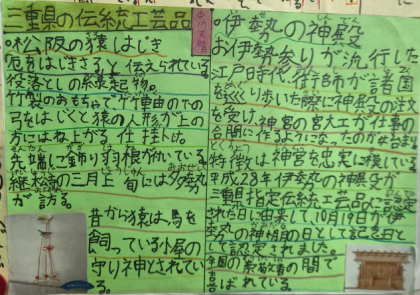 三重県の伝統工芸品
松阪の猿はじき
厄をはじきさると伝えられている
役落としの縁起物。
竹製のおもちゃで竹串の下の
弓をはじくと猿の人形が上の
方にはね上がる仕掛け。
先端に飾り羽根が付いている。
継松寺の三月上旬には多勢
が訪る。
昔から猿は馬を
飼っている小屋の
守り神とされてい
る。
伊勢の神殿
お伊勢参りが流行した
江戸時代、御師が諸国
をめぐり歩いた際に神殿の注文
を受け、神宮の宮大工が仕事の
合間に作るようになったのが始まり
特徴は神宮を忠実に模している
平成28年伊勢の神殿が
三重県指定伝統工芸品に認定
された日に由来して、10月19日が伊
勢の神棚の日として記念日と
して認定されました。
全国の崇敬者の間で
喜ばれている。